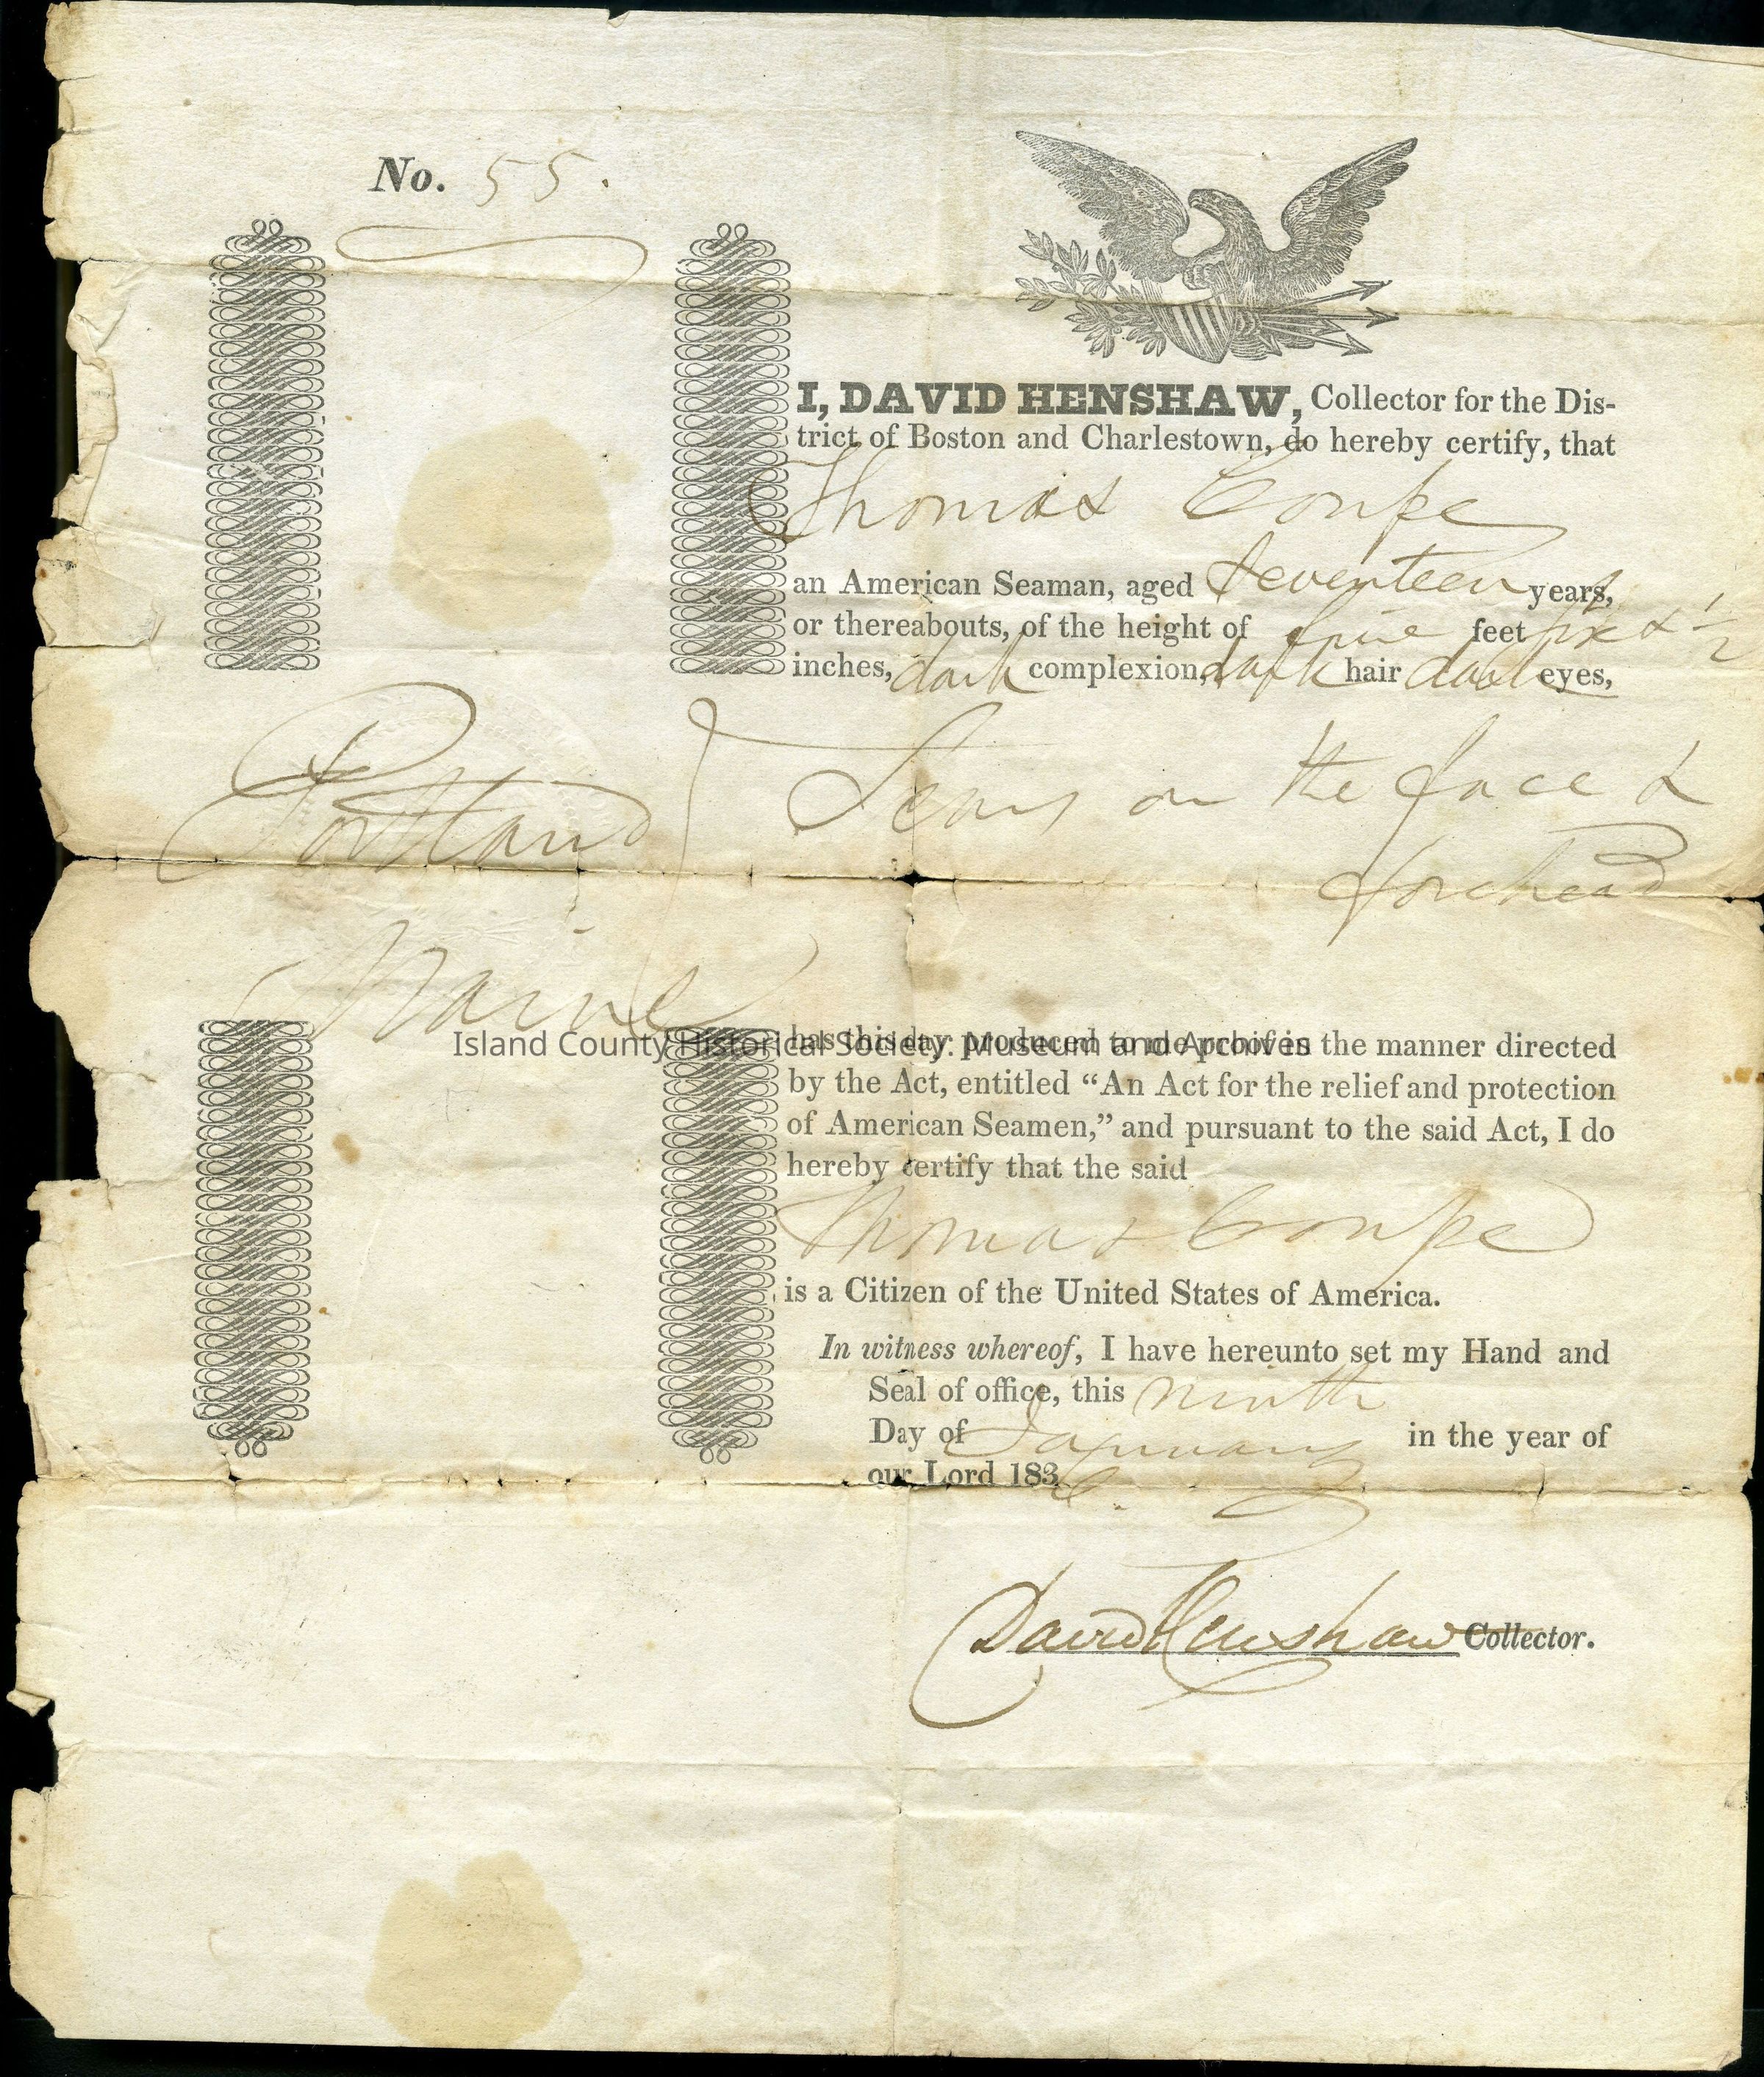 No. 55.
I, DAVID HENSHAW, Collector for the Dis-
trict of Boston and Charlestown, do hereby certify, that
Thomas Coupe
an American Seaman, aged Seventeen years,
or thereabouts, of the height of five feet six & 1/2
inches, dark complexion, dark hair dark eyes,
Scars on the face &
forehead
Portland
Maine
has this day produced to me proof in the manner directed
by the Act, entitled “An Act for the relief and protection
of American Seamen,” and pursuant to the said Act, I do
hereby certify that the said
Thomas Coupe
is a Citizen of the United States of America.
In witness whereof, I have hereunto set my Hand and
Seal of office, this ninth
Day of January in the year of
our Lord 183
David Henshaw Collector.
Island County Historical Society: Museum and Archives